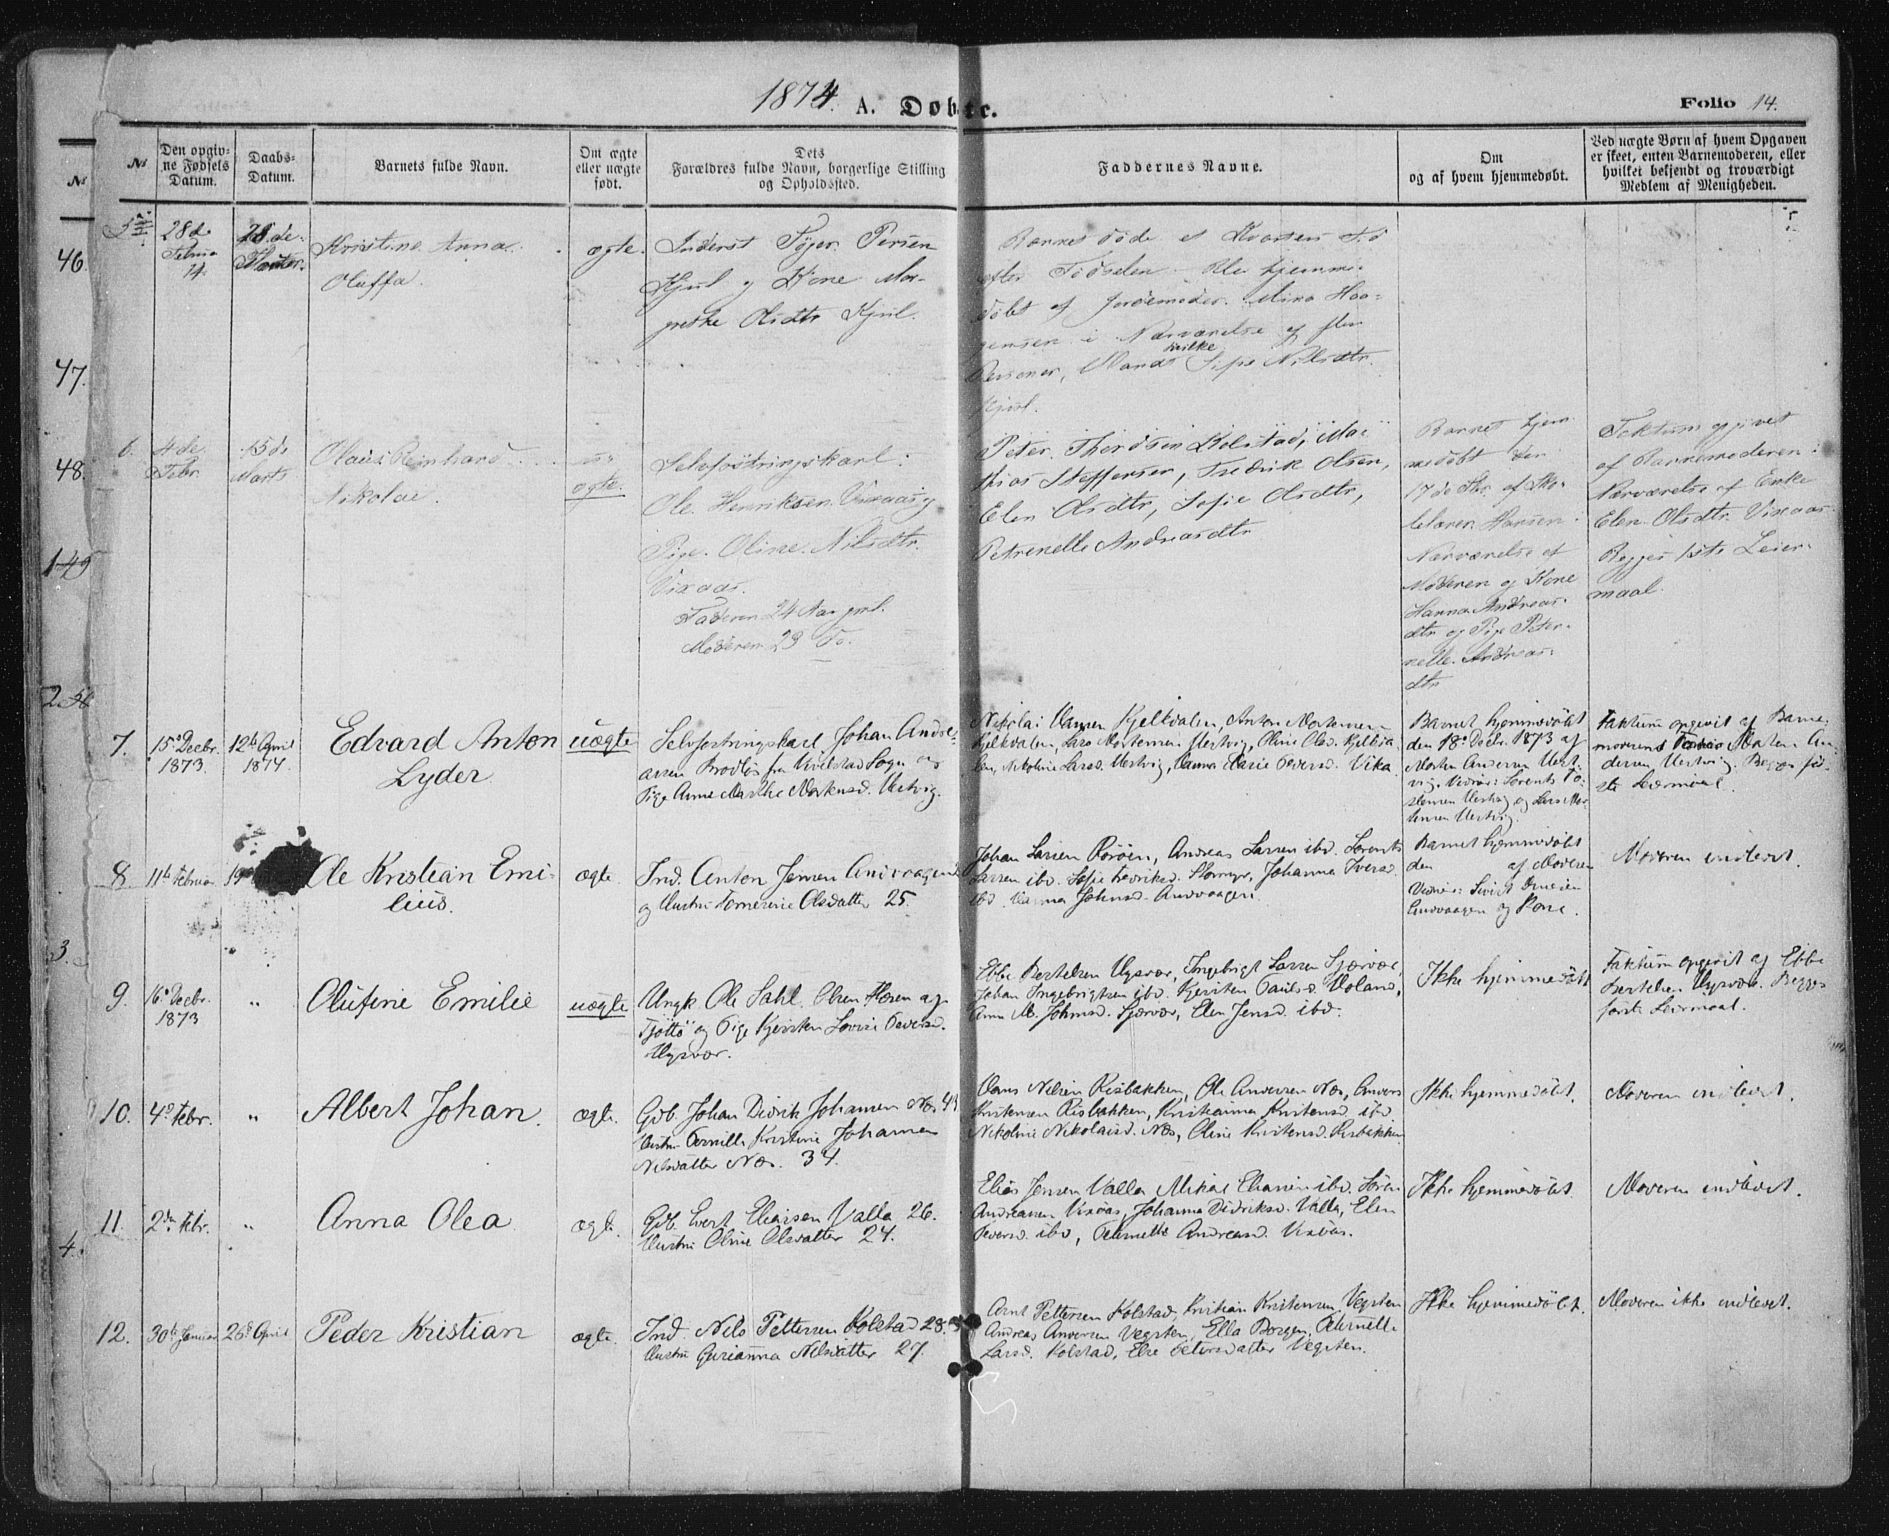 1874.
A. Døbte.
Folio 14.
№
№
Den opgiv-
ne Fødsels
Datum.
Daabs-
Datum.
Barnets fulde Navn.
Om ægte
eller uægte
født.
Dets
Forældres fulde Navn, borgerlige Stilling
og Opholdssted.
Faddernes Navne.
Om
og af hvem hjemmedøbt.
Ved uægte Børn af hvem Opgaven
er skeet, enten Barnemoderen, eller
hvilket bekjendt og troværdigt
Medlem af Menigheden.
46.
47.
48.
3.
4.
5
28de
28de
Kristine Anna
Oluffa.
ægte.
Inderst Persen
Kjul og Kone Mar-
grethe Olsdtr Kjul.
Barnet døde et Kvarters Tid
efter Fødselen. Blev hjemme-
døbt af Jordemoder Mina Haa-
gensen i Nærværelse af flere
Personer,
hvilke
Nilsdtr.
Kjul.
6.
4de
Febr.
15de
Marts
Olaus Reinhard
Nikolai.
u-
ægte.
Selvfostringskarl
Ole Henriksen Vixaas og
Pige Oline Nilsdtr.
Vixaas.
Faderen 24 Aar gml.
Moderen 23 Do.
Peter Thordsen Kolstad, Ma-
thias Steffensen, Fredrik Olsen,
Elen Olsdtr, Sofie Olsdtr,
Petrenelle Andreasdtr
Barnet hjem
medøbt den
17de Febr. af Sko-
lelærer Hansen i
Nærværelse af
Moderen og Kone
Hanna Andreas-
dtr og Pige Peter-
nelle Andreas-
dtr
Faktum opgivet
af Barnemoderen i
Nærværelse af Enke
Elen Olsdtr Vixaas.
Begges 1ste Leier-
maal.
7.
15de Decbr.
1873.
12te April
1874
Edvard Anton
Lyder
uægte
Selvfostringskarl Johan Andre-
assen Brodløs fra Sogn og
Pige Anne Marthe Mortensd. Hestvig.
Nikolai Hansen Kjelkvalen, Anton Mortensen
Kjelkvalen, Lars Mortensen Hestvig, Oline Olsd. Kjelkva-
len, Nikoline Larsd. Hestvig, Hanna Marie Peversd. Vika.
Barnet hjemmedøbt
den 18de Decbr. 1873 af
Morten Andersen Hest-
vig. Vidner: Lorents To-
stensen Hestvig og Lars Mor-
tensen Hestvig.
Faktum opgivet af Barne-
moderens Fader Morten An-
dersen Hestvig. Begges før-
ste Leiermaal.
8
11te Februar
19
Ole Kristian Emi-
lius.
ægte
Ind. Anton Jensen Andvaagen
og Hustru Olsdatter 25.
Johan Larsen Rørøen, Andreas Larsen ibd. Lorents
Larsen ibd. Sofie Johanna Iversd.
ibd. Hanna Johnsd. Andvaagen.
Barnet hjemmedøbt
den af Moderen
Vidner: Sivert
Andvaagen og Kone.
Moderen indledet.
9.
16de Decbr.
1873
"
Olufine Emilie
uægte
Ungk. Ole Dahl Olsen Horen af
Tjøttø og Pige Kjersten Lovise Peversd.
Hysvær.
Ebbe Bertelsen Hysvær, Ingebrigt Larsen Skjærvær,
Johan Ingebrigtsen ibd. Kjersten Paulsd. Holand,
Anna M. Johnsd. Skjærvær, Elen Jensd. ibd.
Ikke hjemmedøbt
Faktum opgivet af Ebbe
Bertelsen Hysvær. Begges
første Leiermaal.
10.
4de Febr.
"
Albert Johan.
ægte.
Gdb. Johan Didrik Johansen Næs 43
Hustru Pernille Kristine Johanna
Nilsdatter Næs. 34.
Hans Nilsen Risbakken, Ole Andersen Næs, Anders
Kristensen Risbakken, Kristianna Kristensd. ibd
Nikoline Nikolaisd. Næs, Oline Kristensd. Risbakken
Ikke hjemmedøbt.
Moderen indledet.
11.
2den Febr.
"
Anna Olea
ægte.
Gdb. Evert Eliassen Valla 26.
Hustru Oline Olsdatter 24.
Elias Jensen Valla Mikal Eliassen ibd. Søren
Andreassen Vixaas, Johanna Didriksd. Valla, Elen
Peversd. ibd, Petrnelle Andreasd. Vixaas.
Ikke hjemmedøbt.
Moderen indledet.
12.
30te Januar
26de April
Peder Kristian
ægte.
Ind. Nils Pettersen Kolstad 28.
Hustru Gurianna Nilsdatter 27.
Arnt Pettersen Kolstad, Kristian Kristensen Vegsten
Andreas Andersen Vegsten, Ella Borgen, Petrnelle
Larsd. Kolstad, Else Petersdatter Vegsten.
Ikke hjemmedøbt.
Moderen ikke indledet.